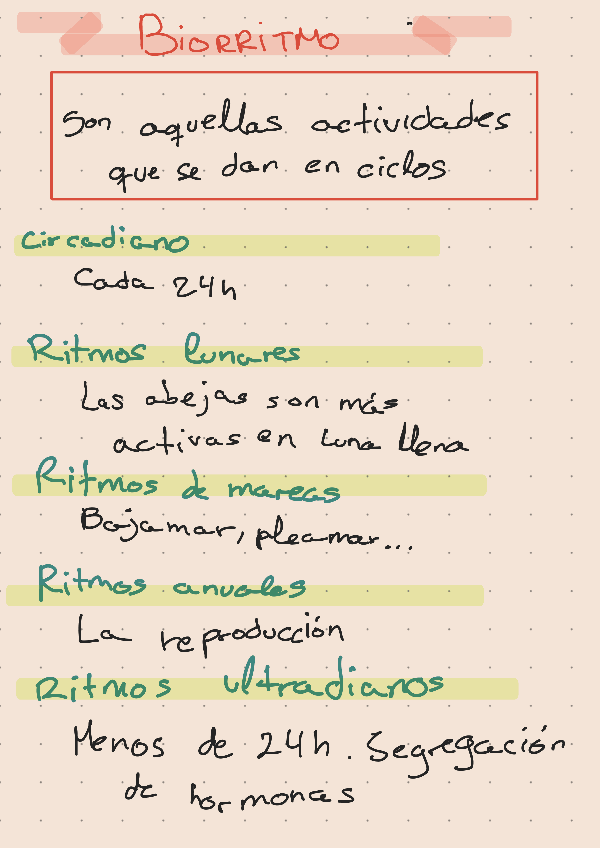 BIORRITMO
Son aquellas actividades
que se dan en ciclos
Circadiano
Cada 24h
Ritmos lunares
Las abejas son más
activas en luna llena
Ritmos de mareas
Bajamar, pleamar...
Ritmos anuales
La reproducción
Ritmos ultradianos
Menos de 24h. Segregación
de hormonas